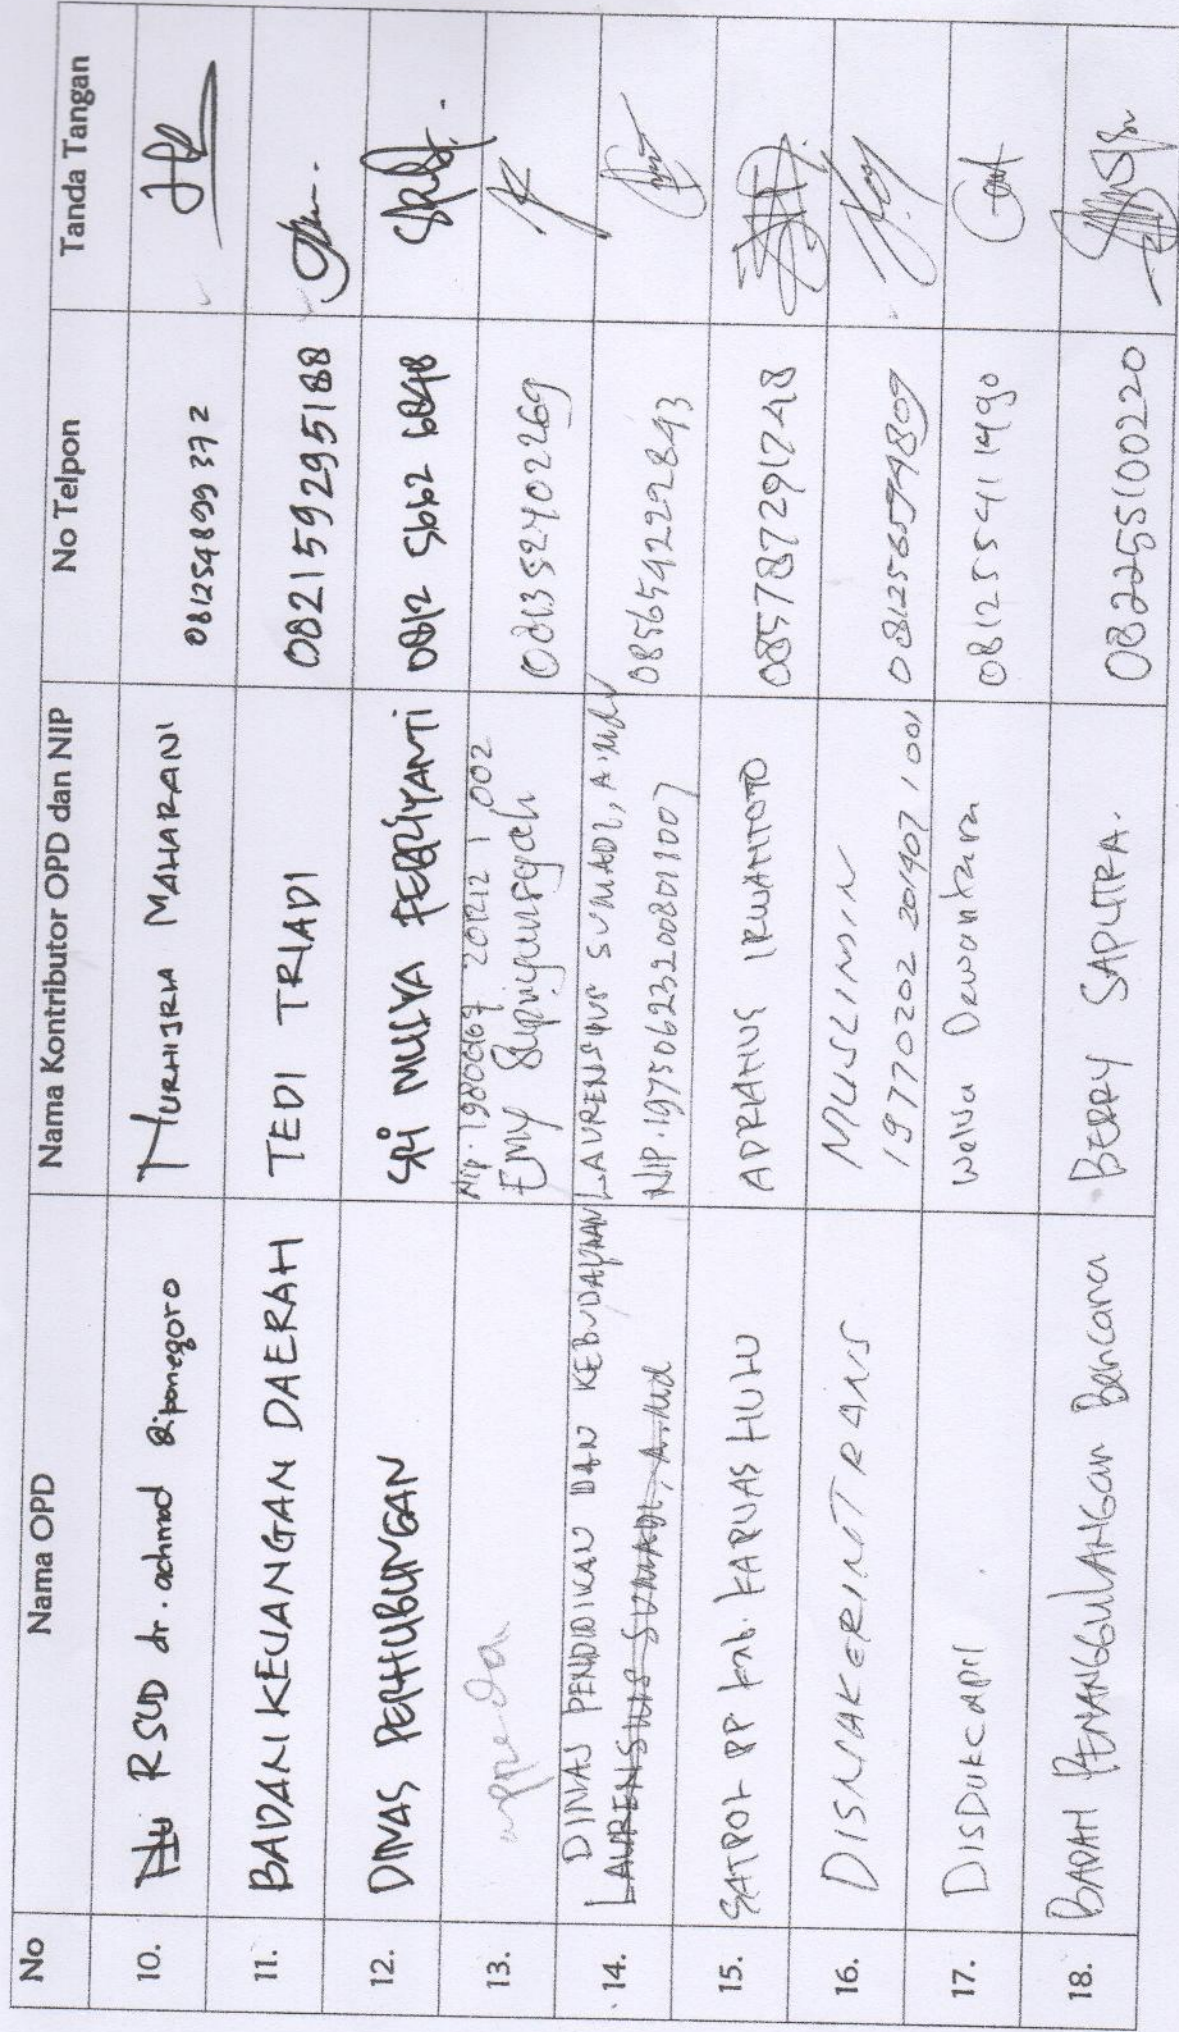 No Nama OPD Nama Kontributor OPD dan NIP No Telpon Tanda Tangan
10. RSUD dr. achmad diponegoro NURHIJRIA MAHARANI 081254899372
11. BADAN KEUANGAN DAERAH TEDI TRIADI 082159295188
12. DINAS PERHUBUNGAN SRI MULYA FEBRIYANTI 0812 5662 6848
Nip. 201212 1 002
13. Emy Supriyunsyah 081352402269
14. DINAS PENDIDIKAN DAN KEBUDAYAAN LAURENSIUS SUMADI, A.Md
LAURENSIUS SUMADI, A.Md NIP. 197506232008011007 085654222893
15. SATPOL PP Kab. KAPUAS HULU ADRIANUS IRWANTOTO 085787291748
16. DISNAKERINTRANS MUSLIMIN
19770202 201407 1 001 081256594809
17. DISDUKCAPIL Welva Dewantara 081255411490
18. BADAN PENANGGULANGAN Bencana BERRY SAPUTRA. 082255100220